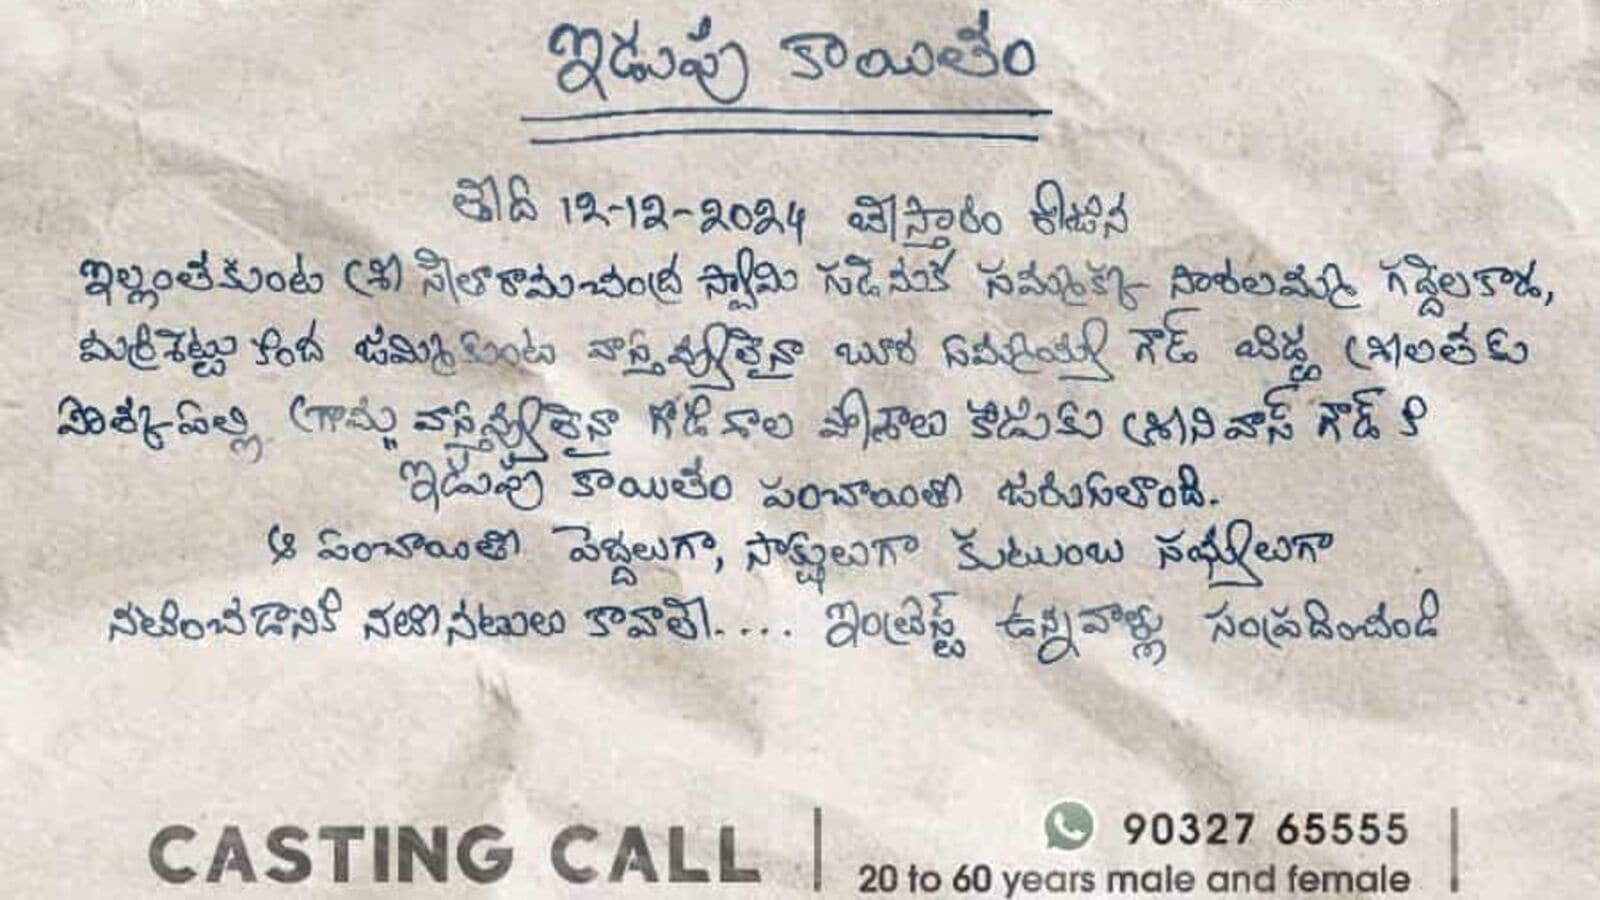 ఇడుపు కాయితం
తాది 12-12-2024 బేస్తారం రోజున
ఇల్లంతకుంట శ్రీ సీతారామచంద్ర స్వామి గుడెనుక సమ్మక్క సారలమ్మ గద్దెలకాడ,
మర్రిశెట్టు కింద జమ్మికుంట వాస్తవ్యులైనా బూర సమ్మయ్య గౌడ్ బిడ్డ శ్రీలతకు
గ్రామ వాస్తవ్యులైనా గోడిశాల పోశాలు కొడుకు శ్రీనివాస్ గౌడ్ కి
ఇడుపు కాయితం పంచాయితీ జరుగుతోంది.
ఆ పంచాయితీ పెద్దలుగా, సాక్షులుగా కుటుంబ సభ్యులుగా
నటించడానికి నటీనటులు కావాలి.... ఇంట్రెస్ట్ ఉన్నవాళ్లు సంప్రదించండి
CASTING CALL
90327 65555
20 to 60 years male and female